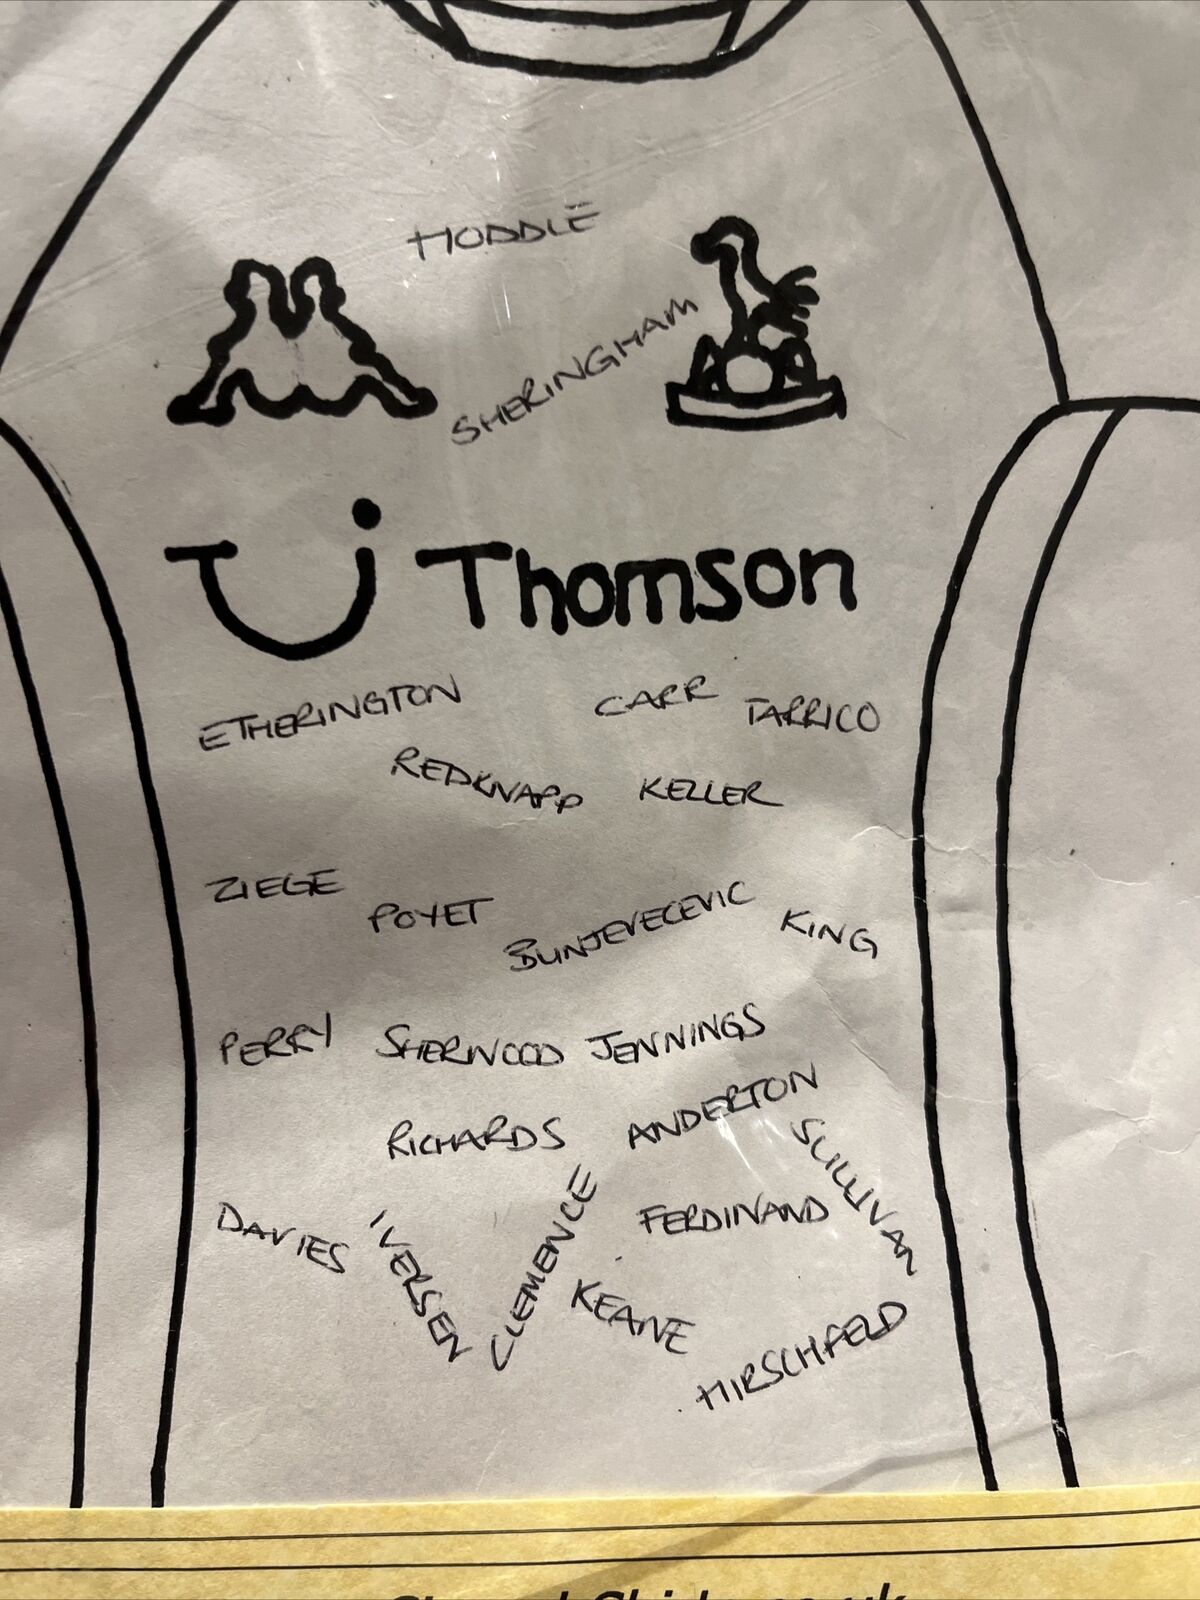 HODDLE
SHERINGHAM
Thomson
ETHERINGTON
CARR
TARRICO
REDKNAPP
KELLER
ZIEGE
POYET
BUNJEVECEVIC
KING
PERRY
SHERWOOD
JENNINGS
RICHARDS
ANDERTON
SULLIVAN
DAVIES
IVERSEN
CLEMENCE
FERDINAND
KEANE
HIRSCHFELD